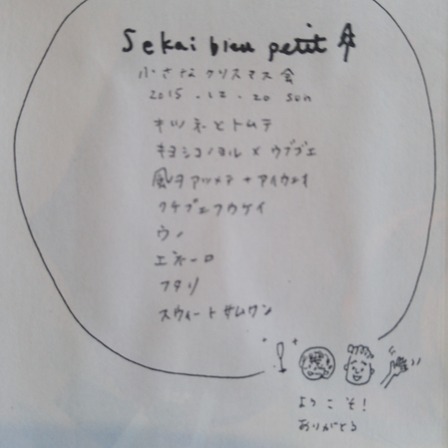 Sekai bleu petit
小さなクリスマス会
2015.12.20 sun
キツネとトムテ
キヨシコノヨル × ウブブエ
風ヲアツメテ + アイウエオ
クチブエフウケイ
ウノ
エネーロ
フタリ
スウィートサムワン
ようこそ!
ありがとう